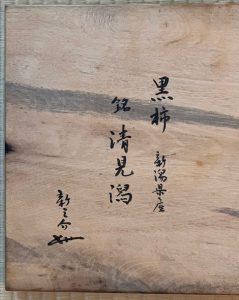 黒柿 新潟県産
銘 清見潟
新之介